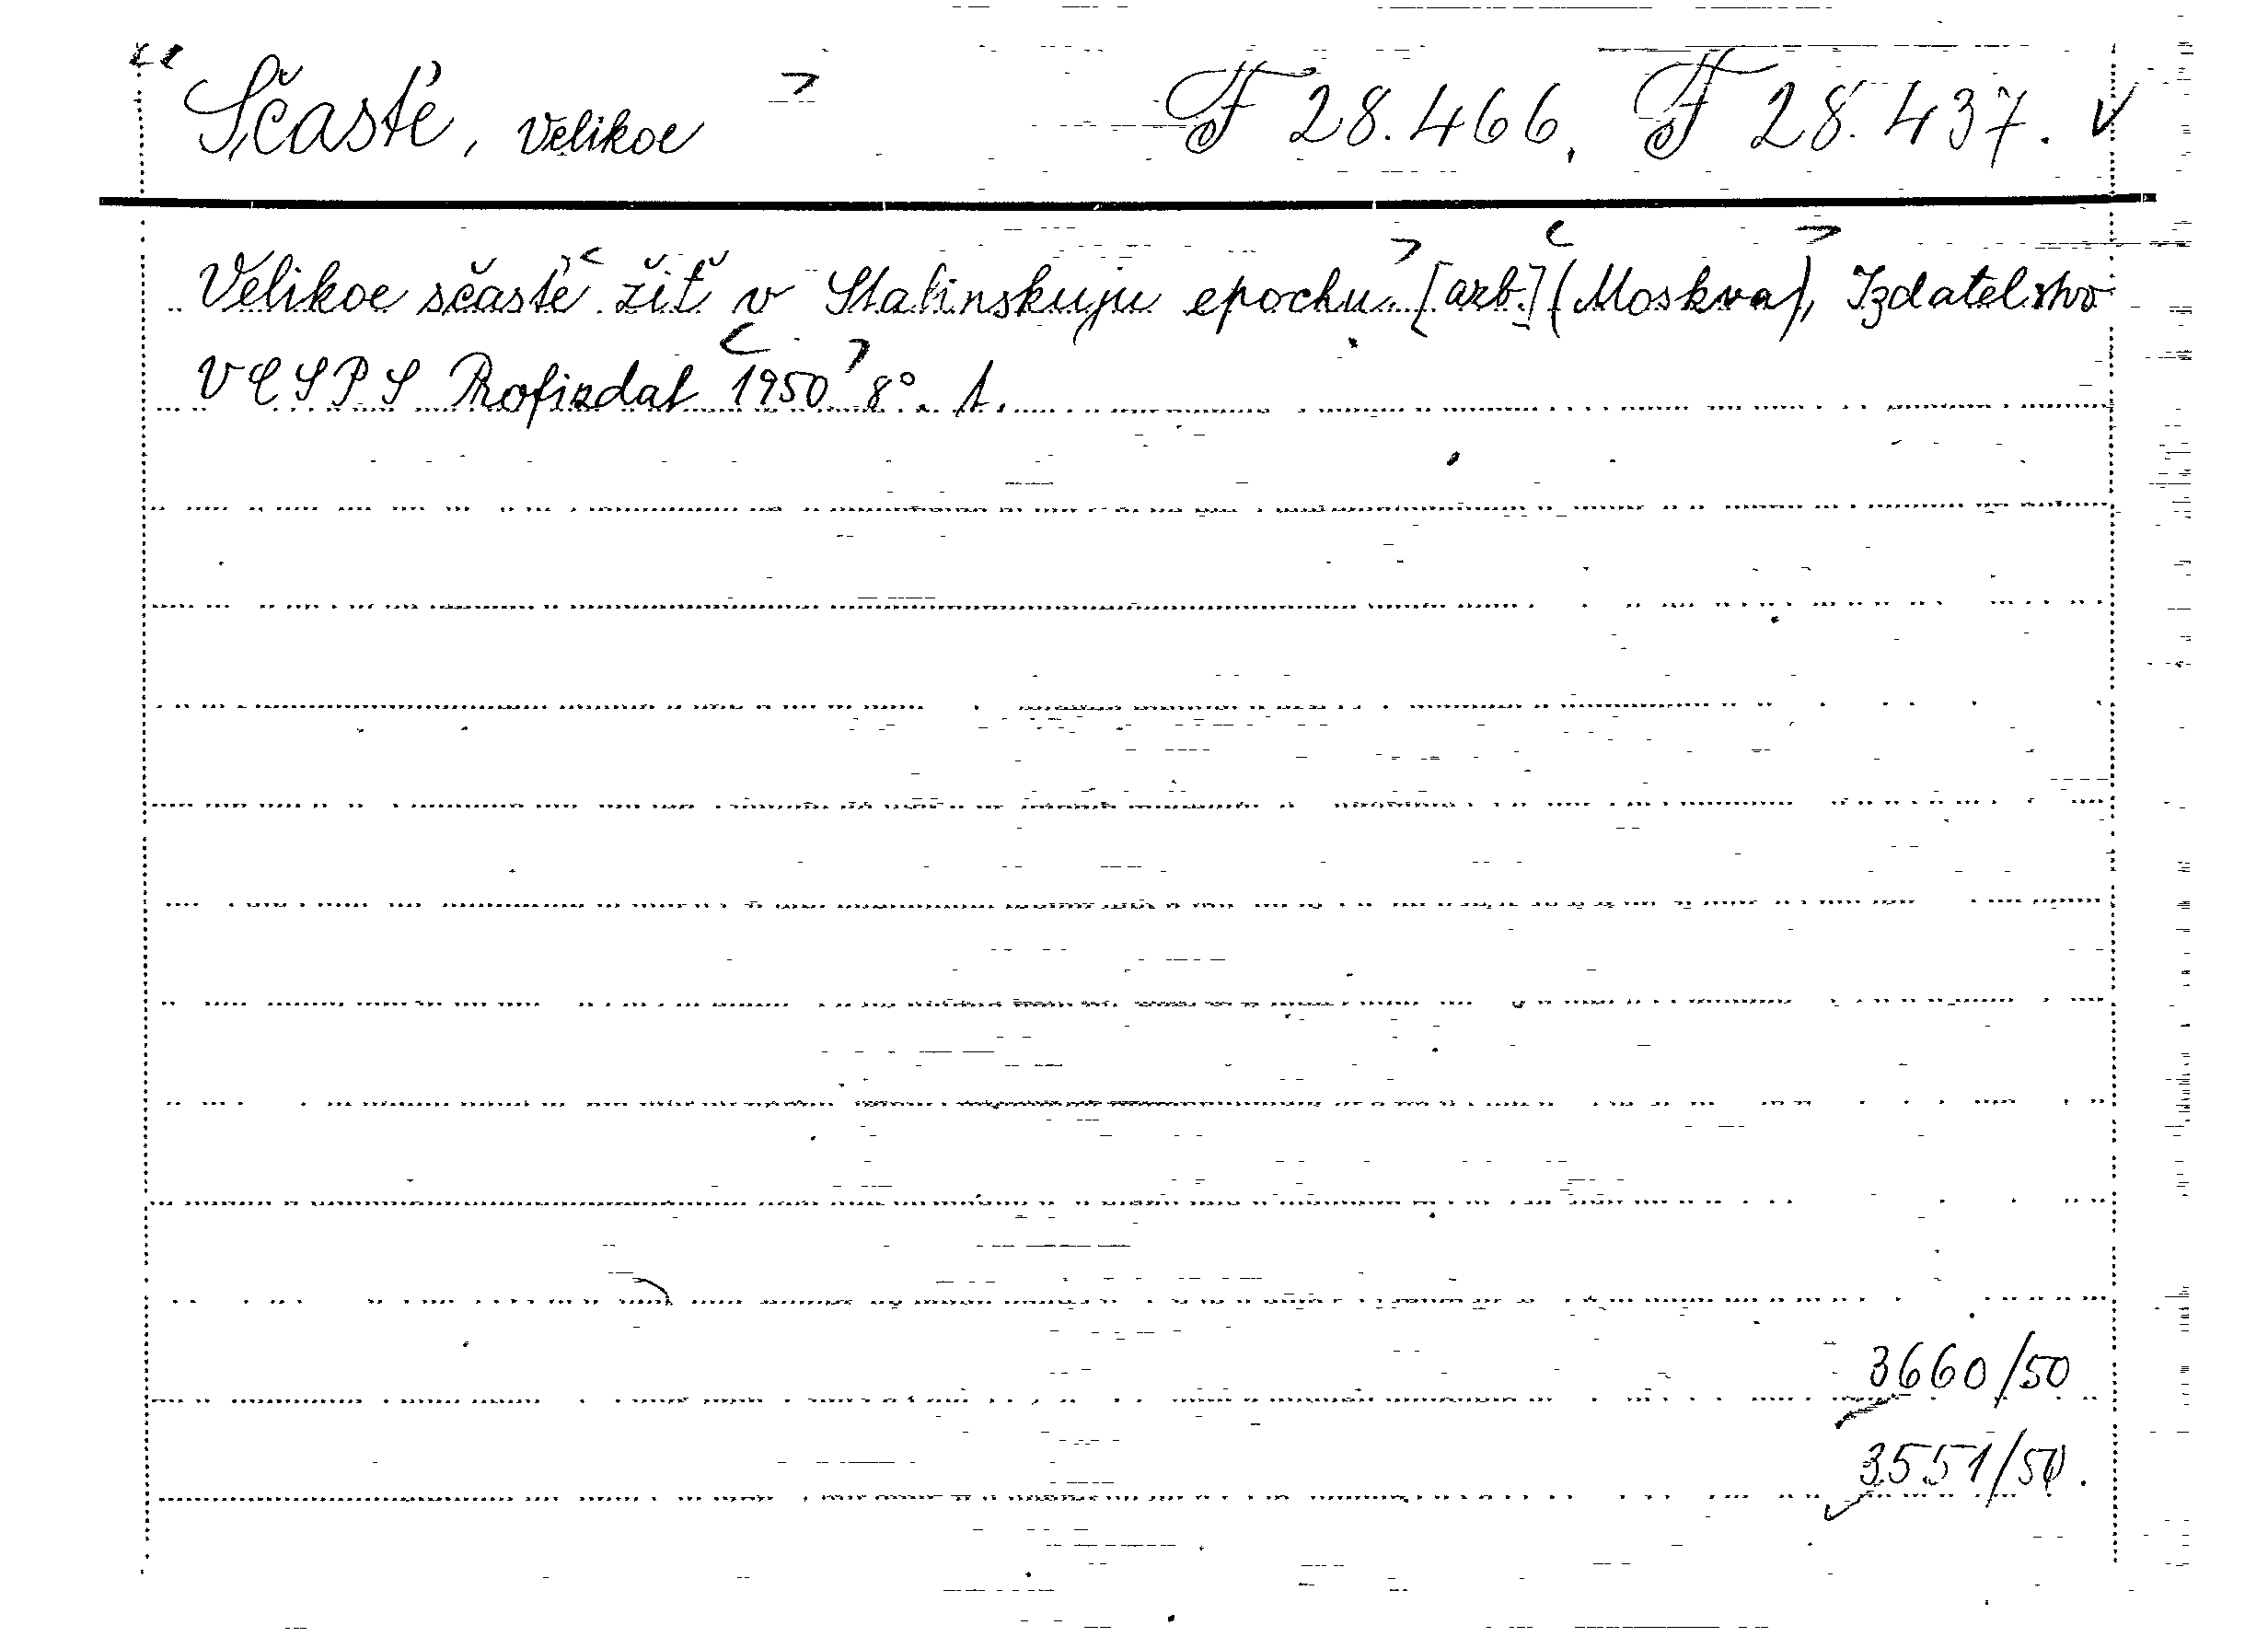 Sčasťe, Velikoe F 28.466, F 28.437.
Velikoe sčasťe žiť v Stalinskuju epochu. [azb.] (Moskva), Izdatelstvo
VCSPS Profizdat 1950 8°. 1.
3660/50
3551/50.